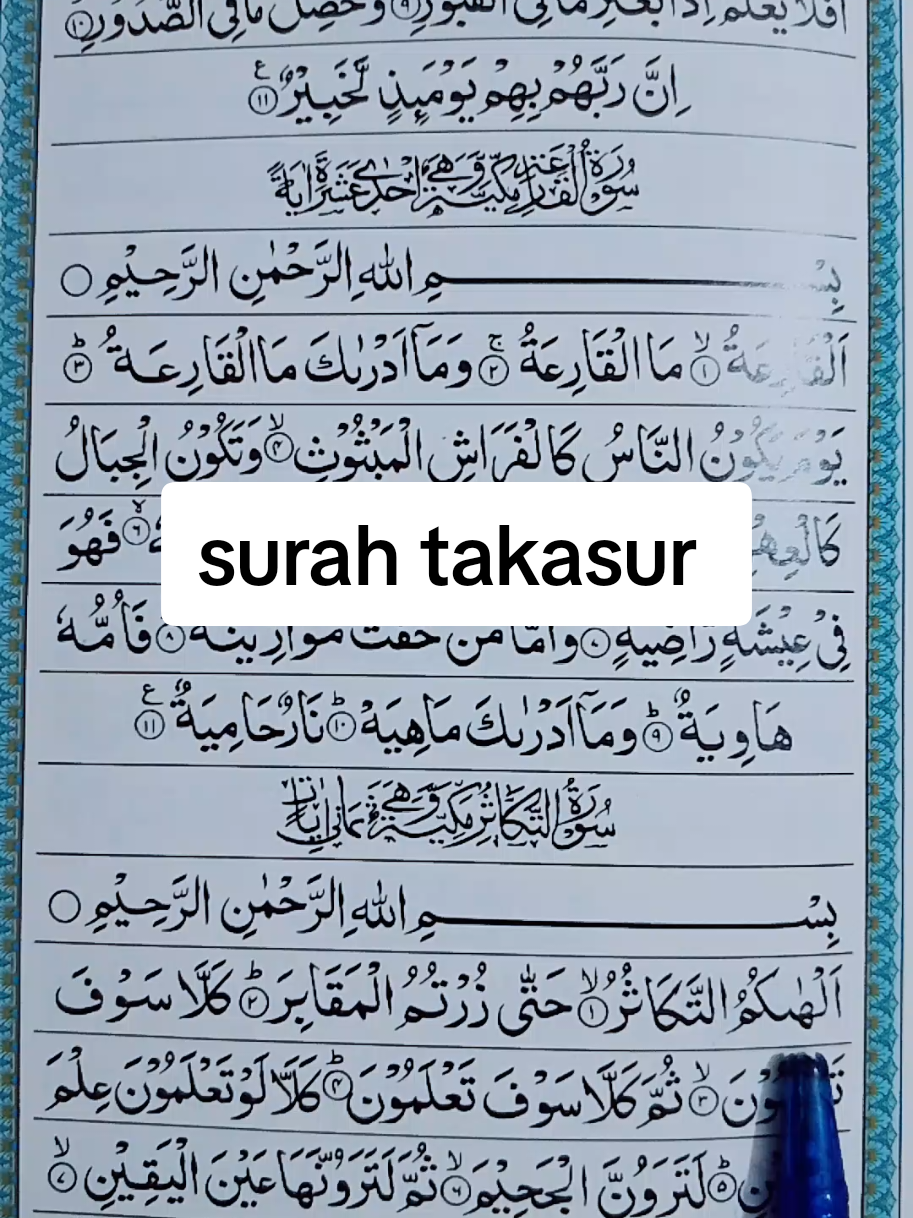 اَفَلَا يَعْلَمُ اِذَا بُعْثِرَ مَا فِي الْقُبُوْرِ ۙ﴿۹﴾ وَحُصِّلَ مَا فِي الصُّدُوْرِ ۙ﴿۱۰﴾
اِنَّ رَبَّهُمْ بِهِمْ يَوْمَىِٕذٍ لَّخَبِيْرٌ ﴿۱۱﴾ ع
سُوْرَةُ الْقَارِعَةِ مَكِّيَّةٌ وَّهِيَ اِحْدٰى عَشَرَةَ اٰيَةً
بِسْــــــــــمِ اللّٰهِ الرَّحْمٰنِ الرَّحِيْمِ ○
اَلْقَارِعَةُ ۙ﴿۱﴾ مَا الْقَارِعَةُ ۚ﴿۲﴾ وَمَاۤ اَدْرٰىكَ مَا الْقَارِعَةُ ؕ﴿۳﴾
يَوْمَ يَكُوْنُ النَّاسُ كَالْفَرَاشِ الْمَبْثُوْثِ ۙ﴿۴﴾ وَتَكُوْنُ الْجِبَالُ
كَالْعِهْ ۙ﴿۶﴾ فَهُوَ
surah takasur
فِيْ عِيْشَةٍ رَّاضِيَةٍ ﴿۷﴾ وَاَمَّا مَنْ خَفَّتْ مَوَازِيْنُهٗ ﴿۸﴾ فَاُمُّهٗ
هَاوِيَةٌ ؕ﴿۹﴾ وَمَاۤ اَدْرٰىكَ مَاهِيَهْ ؕ﴿۱۰﴾ نَارٌ حَامِيَةٌ ﴿۱۱﴾ ع
سُوْرَةُ التَّكَاثُرِ مَكِّيَّةٌ وَّهِيَ ثَمَانِيْ اٰيَاتٍ
بِسْــــــــــمِ اللّٰهِ الرَّحْمٰنِ الرَّحِيْمِ ○
اَلْهٰىكُمُ التَّكَاثُرُ ۙ﴿۱﴾ حَتّٰى زُرْتُمُ الْمَقَابِرَ ؕ﴿۲﴾ كَلَّا سَوْفَ
تَعْلَمُوْنَ ۙ﴿۳﴾ ثُمَّ كَلَّا سَوْفَ تَعْلَمُوْنَ ؕ﴿۴﴾ كَلَّا لَوْ تَعْلَمُوْنَ عِلْمَ
ؕ﴿۵﴾ لَتَرَوُنَّ الْجَحِيْمَ ۙ﴿۶﴾ ثُمَّ لَتَرَوُنَّهَا عَيْنَ الْيَقِيْنِ ۙ﴿۷﴾